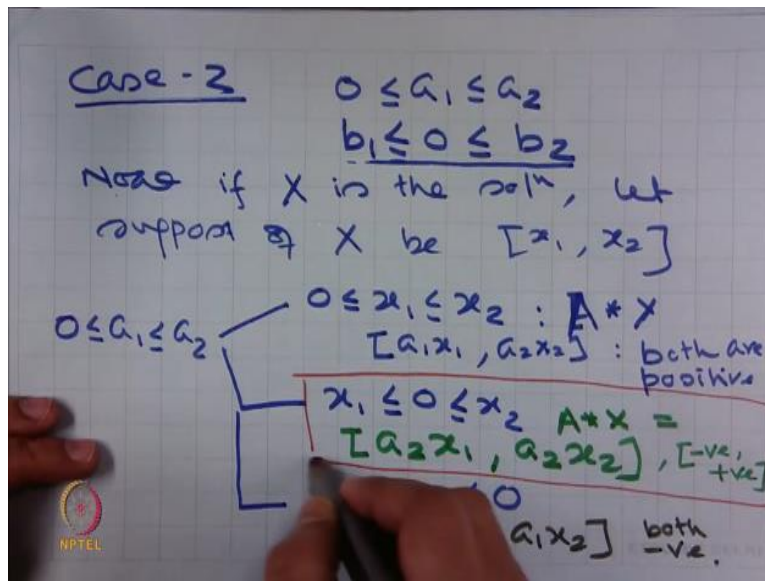 Case - 2
0 ≤ a₁ ≤ a₂
b₁ ≤ 0 ≤ b₂
if X is the solⁿ, let
suppose of X be [x₁, x₂]
0 ≤ a₁ ≤ a₂
0 ≤ x₁ ≤ x₂ : A * X
[a₁x₁, a₂x₂] : both are
positive
x₁ ≤ 0 ≤ x₂ A * X =
[a₂x₁, a₂x₂], [-ve,
+ve]
≤ 0
a₁x₂] both
-ve.
NPTEL